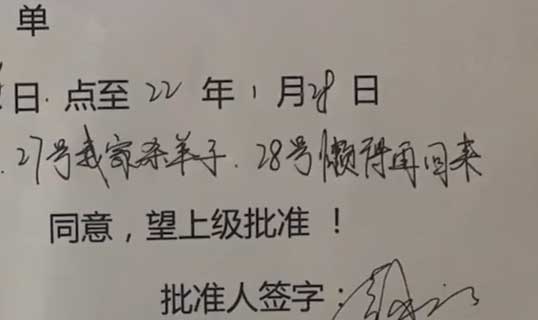 单
日. 点至 22 年 1 月 28 日
.27号我家杀羊子.28号懒得再回来
同意，望上级批准！
批准人签字：